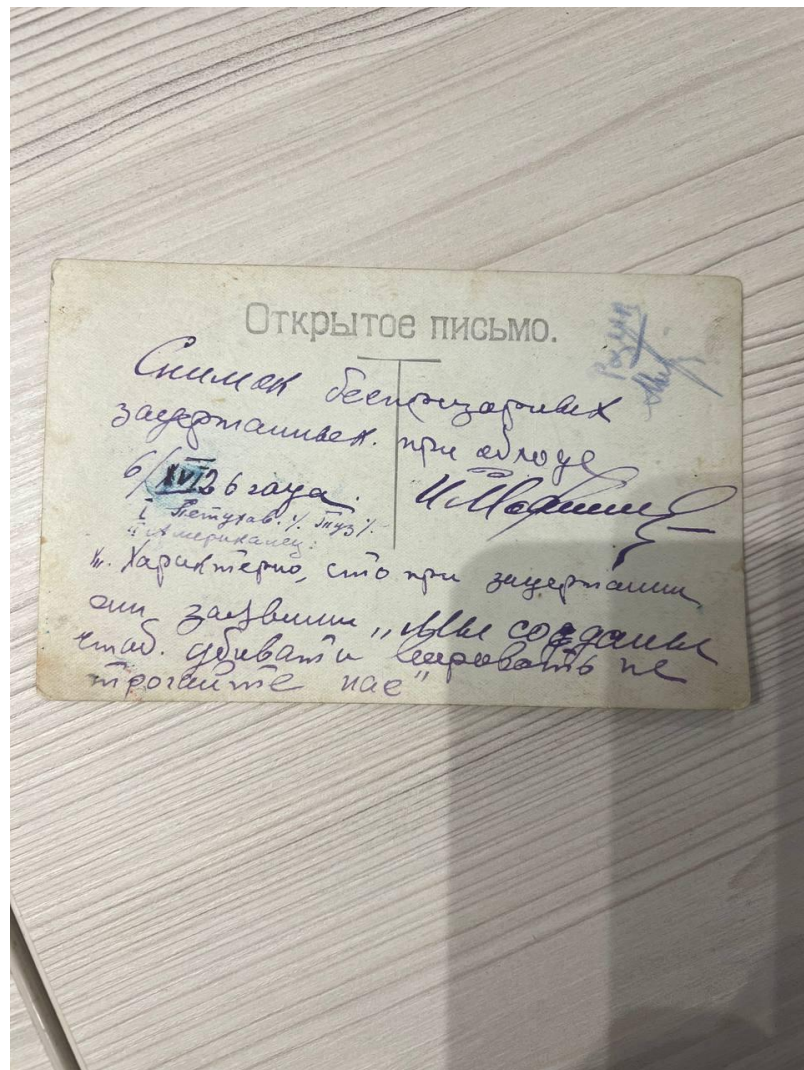 Открытое письмо.
Снимок беспризорных
задержанных. при облоде
6/XVI 26 года.
I Петухов. ٪ Туз ٪.
II Американец.
Характерно, что при задержании
они заявили „Мы созданы
чтоб. убивать и воровать не
трогайте нас"